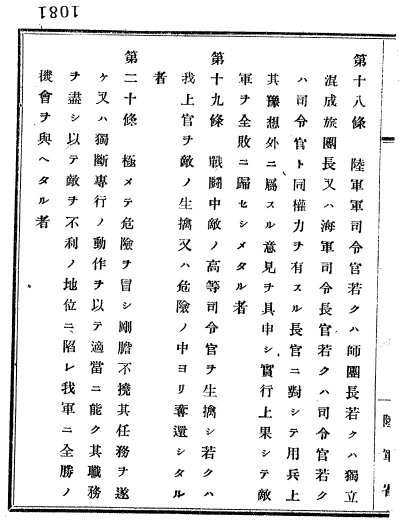 1081
第十八條　陸軍軍司令官若クハ師團長若クハ獨立
混成旅團長又ハ海軍司令長官若クハ司令官若ク
ハ司令官ト同權力ヲ有スル長官ニ對シテ用兵上
其豫想外ニ屬スル意見ヲ具申シ實行上果シテ敵
軍ヲ全敗ニ歸セシメタル者
第十九條　戰鬪中敵ノ高等司令官ヲ生擒シ若クハ
我上官ヲ敵ノ生擒又ハ危險ノ中ヨリ奪還シタル
者
第二十條　極メテ危險ヲ冒シ剛膽不撓其任務ヲ遂
ケ又ハ獨斷專行ノ動作ヲ以テ適當ニ能ク其職務
ヲ盡シ以テ敵ヲ不利ノ地位ニ陷レ我軍ニ全勝ノ
機會ヲ與ヘタル者
陸軍省